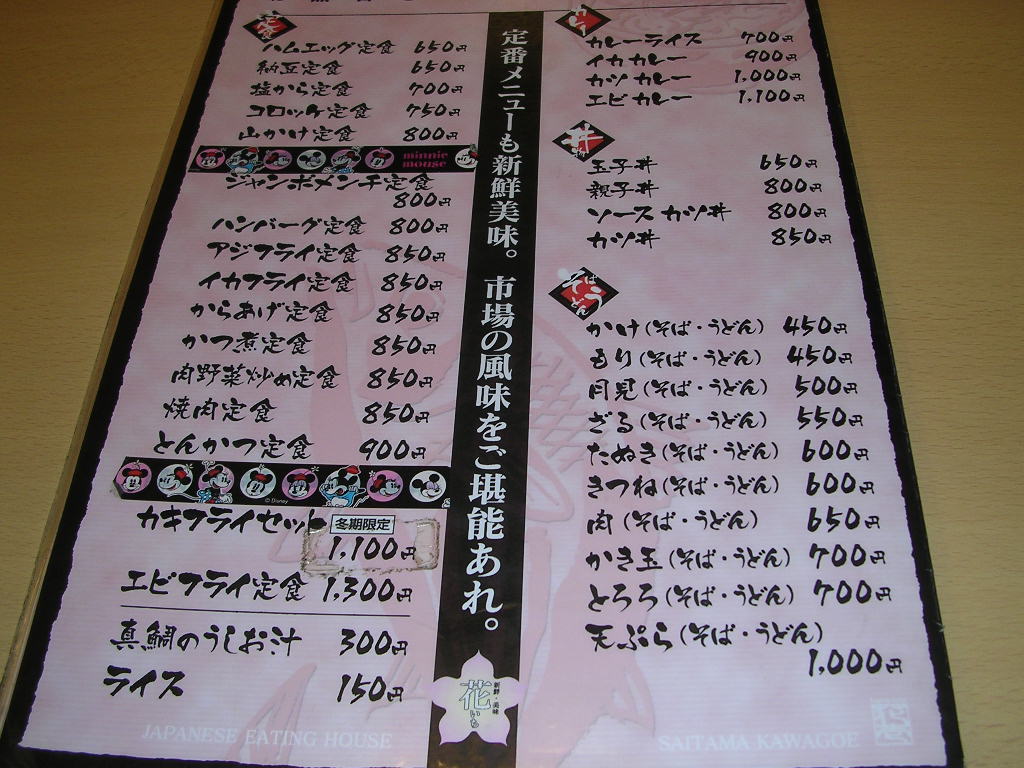 定食
ハムエッグ定食 650円
納豆定食 650円
塩から定食 700円
コロッケ定食 750円
山かけ定食 800円
minnie
mouse
ジャンボメンチ定食
800円
ハンバーグ定食 800円
アジフライ定食 850円
イカフライ定食 850円
からあげ定食 850円
かつ煮定食 850円
肉野菜炒め定食 850円
焼肉定食 850円
とんかつ定食 900円
© Disney
カキフライセット 冬期限定
1,100円
エビフライ定食 1,300円
真鯛のうしお汁 300円
ライス 150円
JAPANESE EATING HOUSE
定番メニューも新鮮美味。市場の風味をご堪能あれ。
新鮮・美味
花いち
カレー
カレーライス 700円
イカカレー 900円
カツカレー 1,000円
エビカレー 1,100円
丼
玉子丼 650円
親子丼 800円
ソースカツ丼 800円
カツ丼 850円
そば
うどん
かけ(そば・うどん) 450円
もり(そば・うどん) 450円
月見(そば・うどん) 500円
ざる(そば・うどん) 550円
たぬき(そば・うどん) 600円
きつね(そば・うどん) 600円
肉(そば・うどん) 650円
かき玉(そば・うどん) 700円
とろろ(そば・うどん) 700円
天ぷら(そば・うどん)
1,000円
SAITAMA KAWAGOE